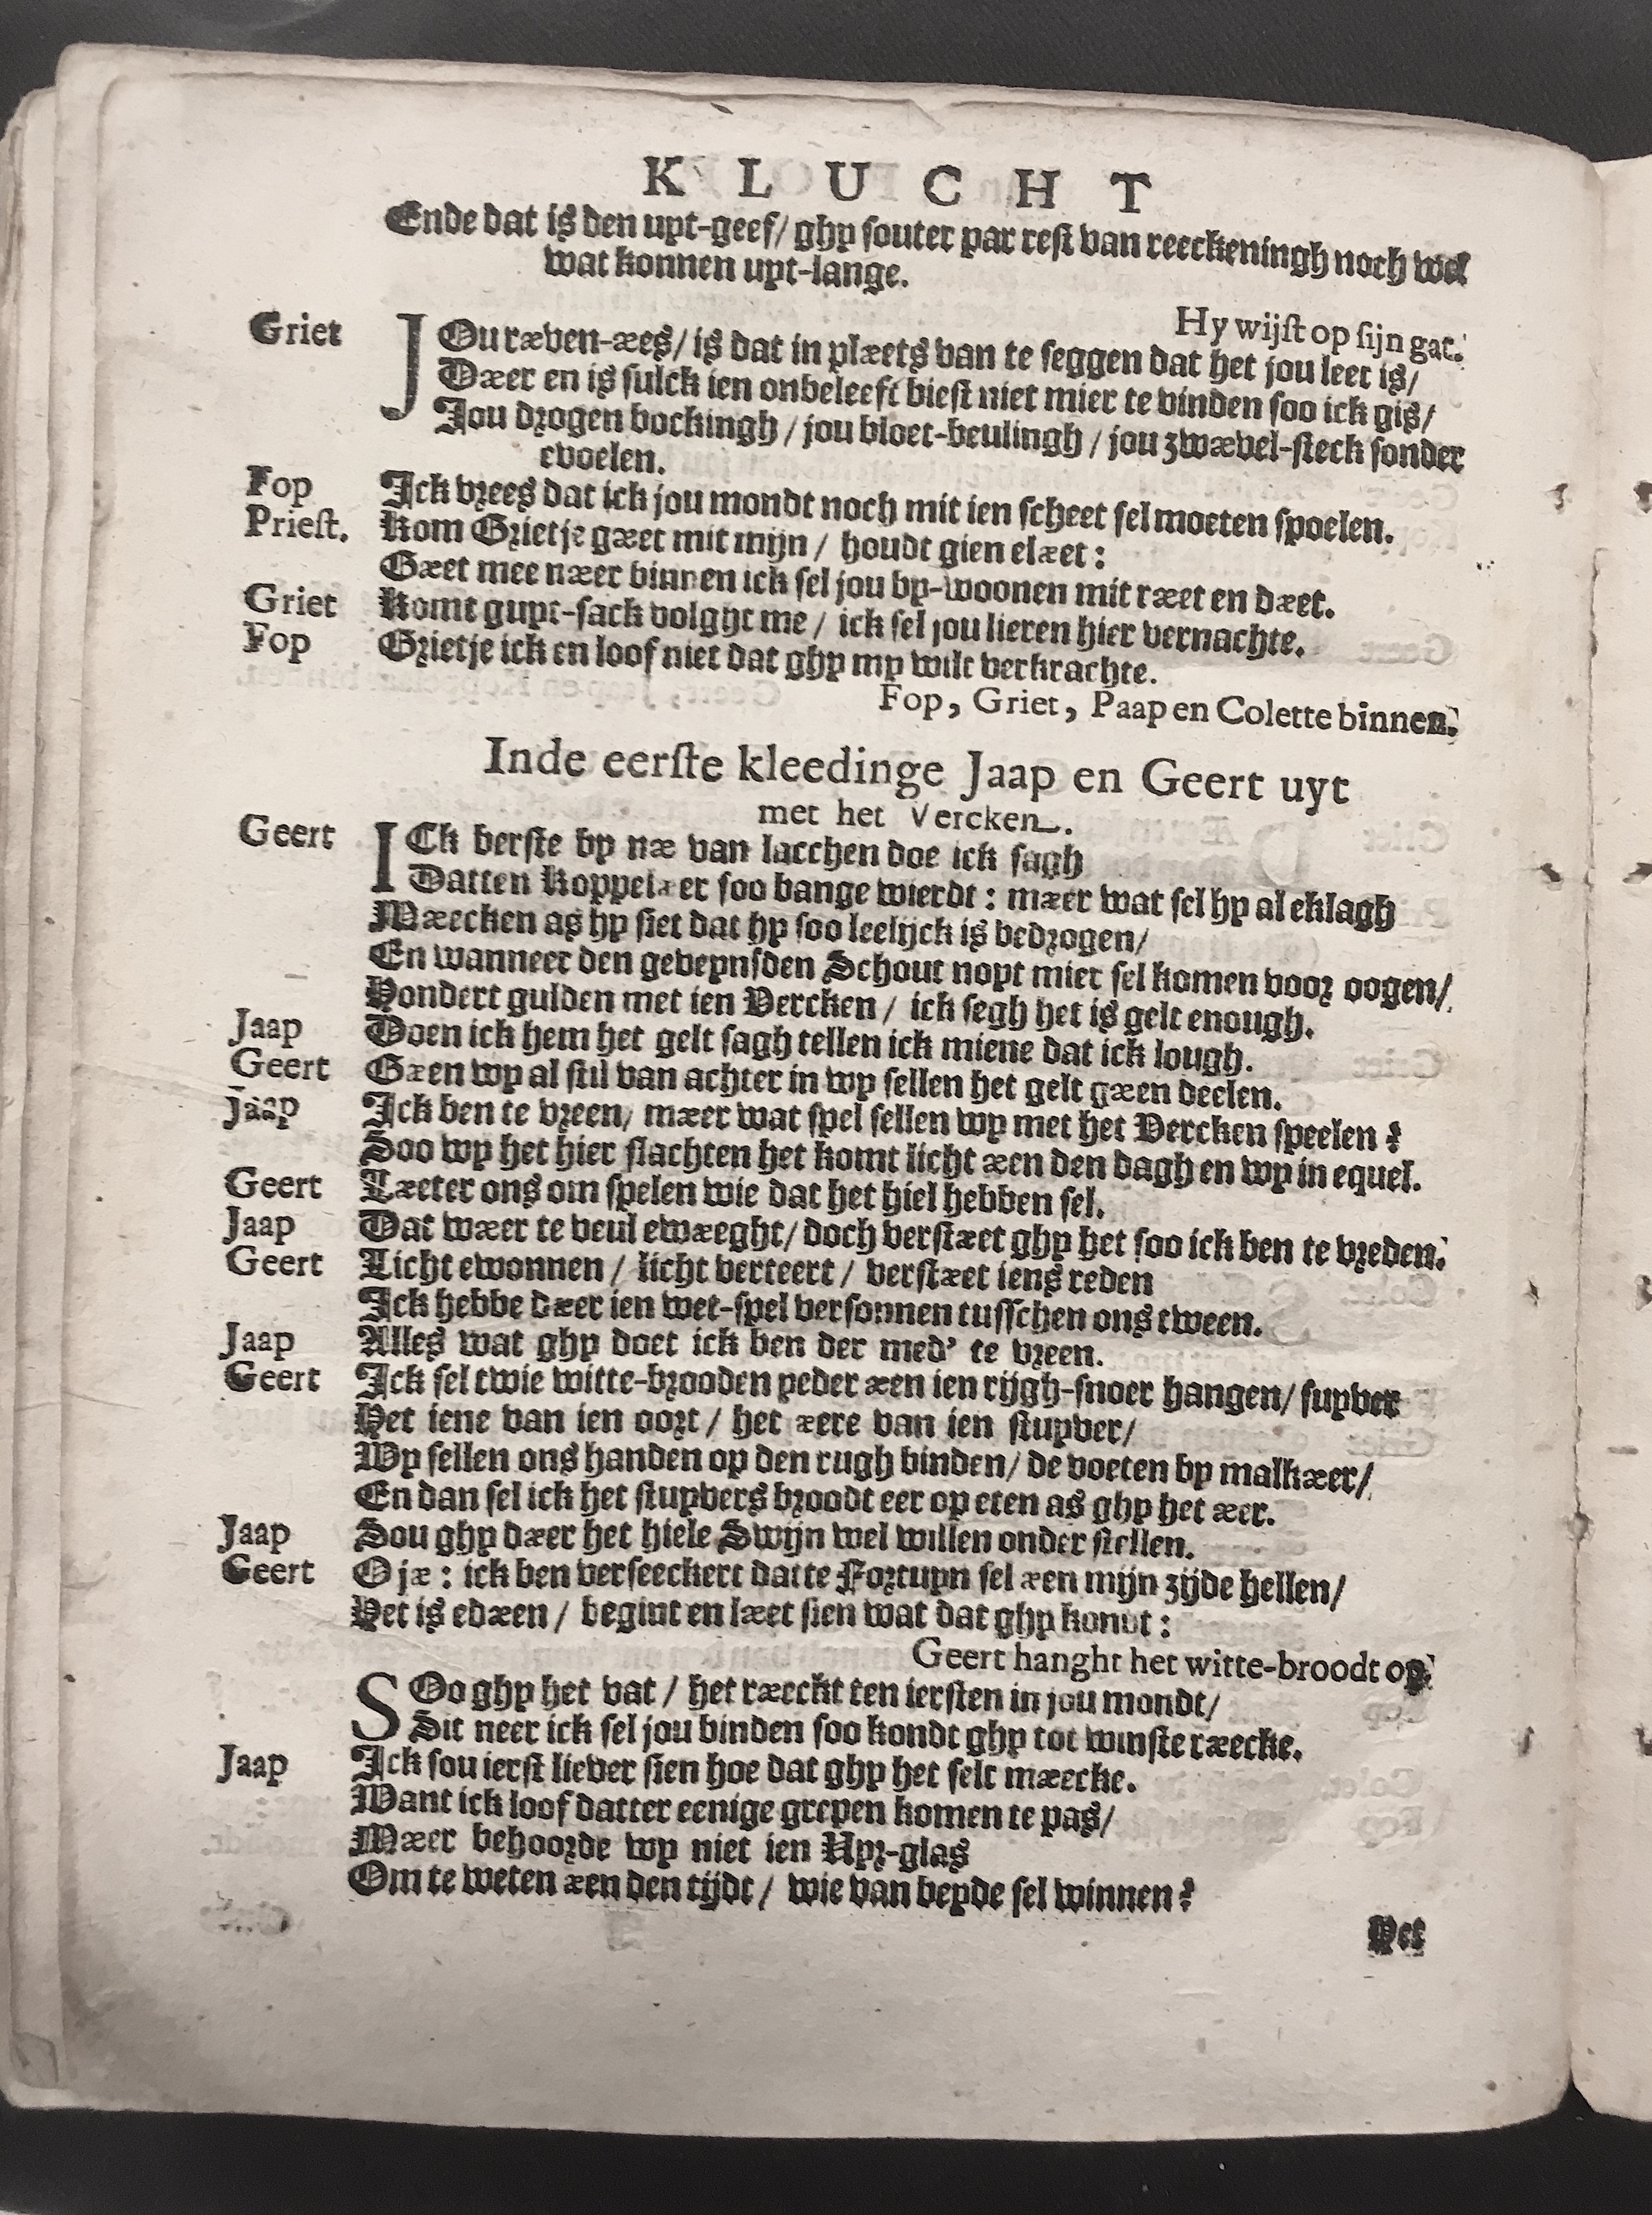 K L U C H T
Ende dat is den uyt-geef/ ghy souter par rest van reeckeningh noch wel
wat konnen uyt-lange.
Hy wijst op sijn gat.
Griet JOu ræven-æes/ is dat in plæets van te seggen dat het jou leet is/
Dæer en is sulck ien onbeleeft biest niet mier te vinden soo ick gis/
Jou drogen bockingh / jou bloet-beulingh / jou zwævel-steck sonder
evoelen.
Fop Ick vrees dat ick jou mondt noch mit ien scheet sel moeten spoelen.
Priest. Kom Grietje gæet mit mijn / houdt gien elæet :
Gæet mee næer binnen ick sel jou by-woonen mit ræet en dæet.
Griet Komt guyt-sack volght me / ick sel jou lieren hier vernachte.
Fop Grietje ick en loof niet dat ghy my wilt verkrachte.
Fop, Griet, Paap en Colette binnen.
Inde eerste kleedinge Jaap en Geert uyt
met het Vercken.
Geert ICk berste by næ van lacchen doe ick sagh
Datten Koppelæer soo bange wierdt : mæer wat sel hy al eklagh
Mæecken as hy siet dat hy soo leelijck is bedrogen/
En wanneer den geveynsden Schout noyt mier sel komen voor oogen/
Hondert gulden met ien Vercken / ick segh het is gelt enough.
Jaap Doen ick hem het gelt sagh tellen ick miene dat ick lough.
Geert Gæen wy al stil van achter in wy sellen het gelt gæen deelen.
Jaap Ick ben te vreen/ mæer wat spel sellen wy met het Vercken speelen ?
Soo wy het hier slachten het komt licht æen den dagh en wy in equel.
Geert Læeter ons om spelen wie dat het hiel hebben sel.
Jaap Dat wæer te veul ewæeght/ doch verstæet ghy het soo ick ben te vreden.
Geert Licht ewonnen / licht verteert / verstæet iens reden
Ick hebbe dæer ien wet-spel versonnen tusschen ons tween.
Jaap Alles wat ghy doet ick ben der med' te vreen.
Geert Ick sel twie witte-brooden yeder æen ien rijgh-snoer hangen/ suyver
Het iene van ien oort / het ære van ien stuyver/
Wy sellen ons handen op den rugh binden/ de voeten by malkæer/
En dan sel ick het stuyvers broodt eer op eten as ghy het ær.
Jaap Sou ghy dæer het hiele Swijn wel willen onder stellen.
Geert O jæ : ick ben verseeckert datte Fortuyn sel æen mijn zijde hellen/
Het is edæen / begint en læet sien wat dat ghy kondt :
Geert hanght het witte-broodt op.
SOo ghy het vat / het ræeckt ten iersten in jou mondt/
Sit neer ick sel jou binden soo kondt ghy tot winste ræecke.
Jaap Ick sou ierst liever sien hoe dat ghy het selt mæecke.
Want ick loof datter eenige grepen komen te pas/
Mæer behoorde wy niet ien Uyr-glas
Om te weten æen den tijdt / wie van beyde sel winnen ?
Het